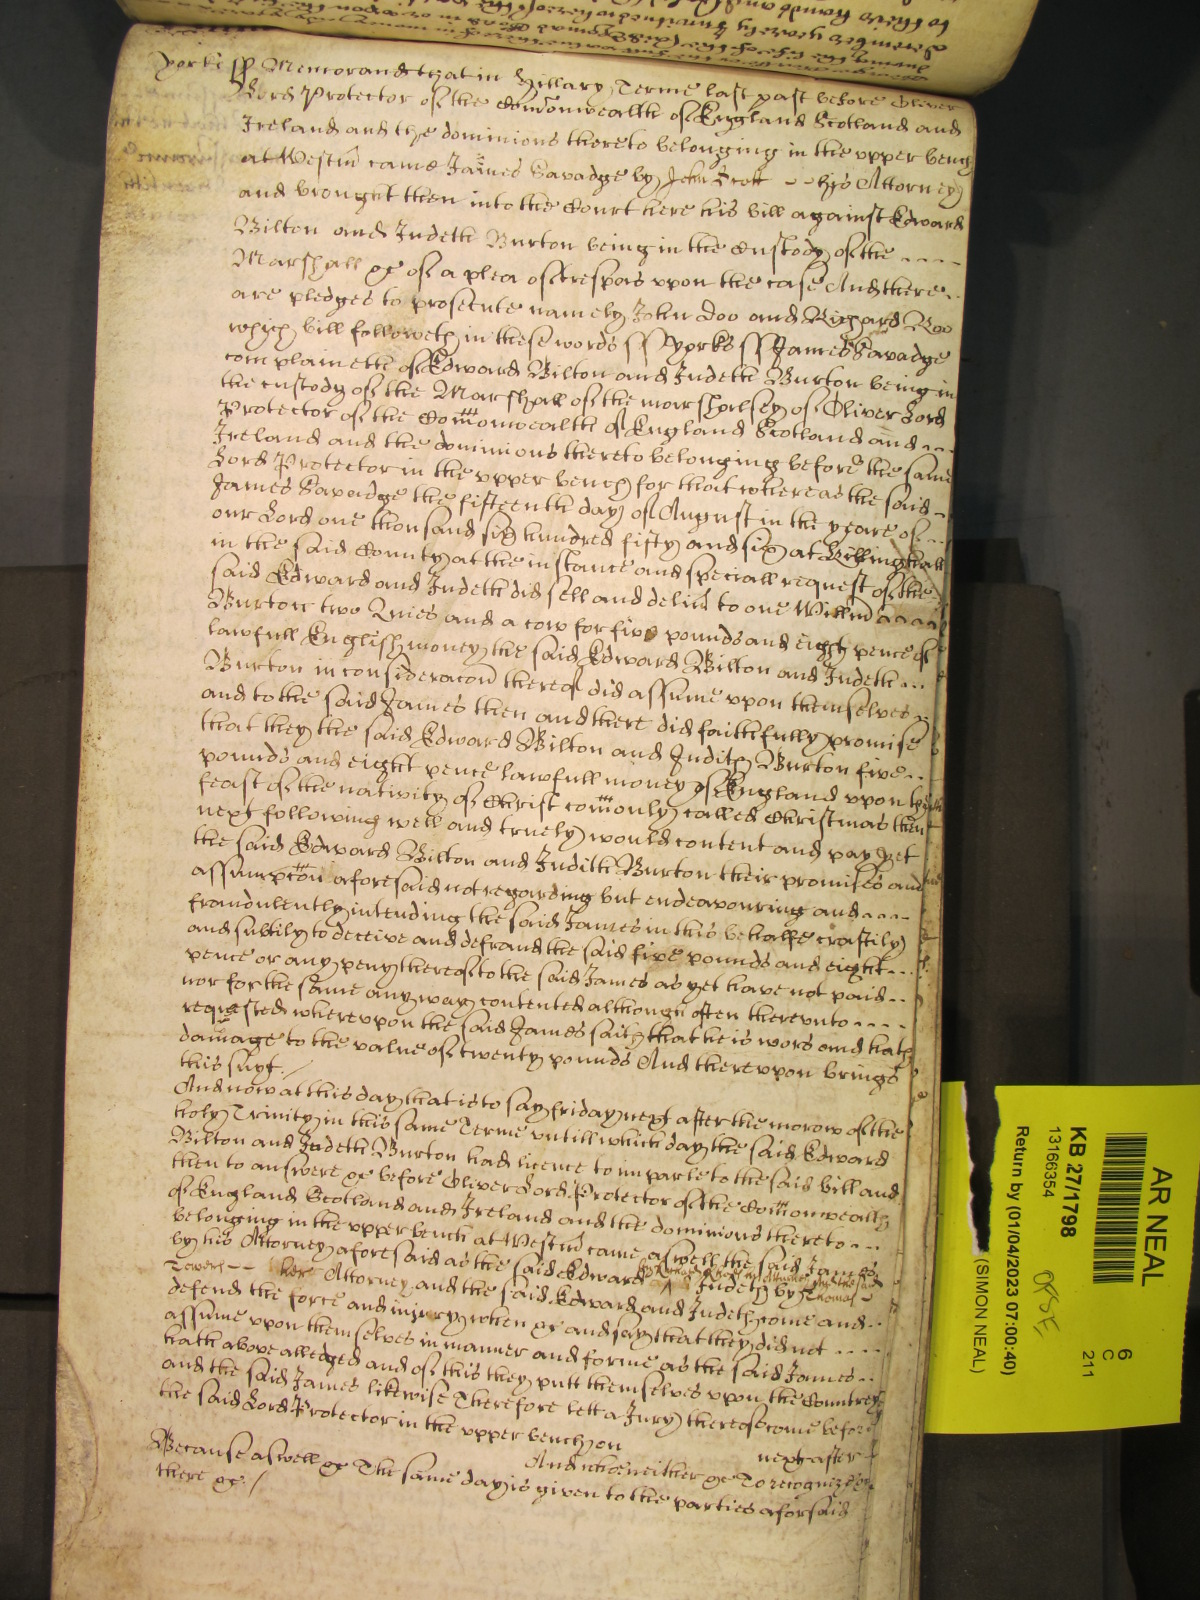 yorks ss Memorand that in Hillary Terme last past before Oliver
Lord Protector of the Comonwealth of England Scotland and
Ireland and the dominions thereto belonging in the upper bench
at Westm came James Savadge by John Scott his Attorney
and brought then into the Court here his bill against Edward
Bilton and Judeth Burton being in the Custody of the ----
Marshall &c of a plea of trespas upon the case And there
are pledges to prosecute namely John Doo and Richard Roo
which bill followeth in these words ss yorks ss James Savadge
complaineth of Edward Bilton and Judeth Burton being in
the custody of the Marshall of the marshalsey of Oliver Lord
Protector of the Comonwealth of England Scotland and ---
Ireland and the dominions thereto belonging before the same
Lord Protector in the upper bench for that whereas the said
James Savadge the fifteenth day of August in the yeare of
our Lord one thousand six hundred fifty and six at
in the said County at the instance and speciall request of the
said Edward and Judeth did sell and deliv to one Willm
Burton two Quies and a cow for five pounds and eight pence of
lawfull English money the said Edward Bilton and Judeth ...
Burton in consideracon thereof did assume upon themselves
and to the said James then and there did faithfully promise
that they the said Edward Bilton and Judith Burton five ..
pounds and eight pence lawfull money of England upon the
feast of the nativity of Christ comonly called Christmas then
next following well and truely would content and pay yet
the said Edward Bilton and Judith Burton their promises and
assumpcon aforesaid not regarding but endeavouring and ----
fraudulently intending the said James in this behalfe craftily
and subtily to deceive and defraud the said five pounds and eight ...
pence or any peny thereof to the said James as yet have not paid ..
nor for the same any way contented although often thereunto ----
requested whereupon the said James saith that he is wors and hath
damage to the value of twenty pounds And thereupon brings
this suyt /
And now at this day that is to say friday next after the morow of the
holy Trinity in this same Terme untill which day the said Edward
Bilton and Judeth Burton had licence to imparle to the said bill and
then to answere &c before Oliver Lord Protector of the Comonwealth
of England Scotland and Ireland and the dominions thereto ...
belonging in the upper bench at Westm came aswell the said James
by his Attorney aforesaid as the said Edward Judeth by Thomas
Towers -- her Attorney and the said Edward and Judeth come and
defend the force and injury when &c and say that they did not ----
assume upon themselves in manner and forme as the said James ..
hath above alledged and of this they putt themselves upon the Countrey
and the said James likewise Therefore lett a Jury thereof come before
the said Lord Protector in the upper bench on next after
And who neither &c To recognize
Because aswell &c The same day is given to the parties aforsaid
there &c /
AR NEAL
6
C
211
KB 27/1798
13166354
Return by (01/04/2023 07:00:40)
(SIMON NEAL)